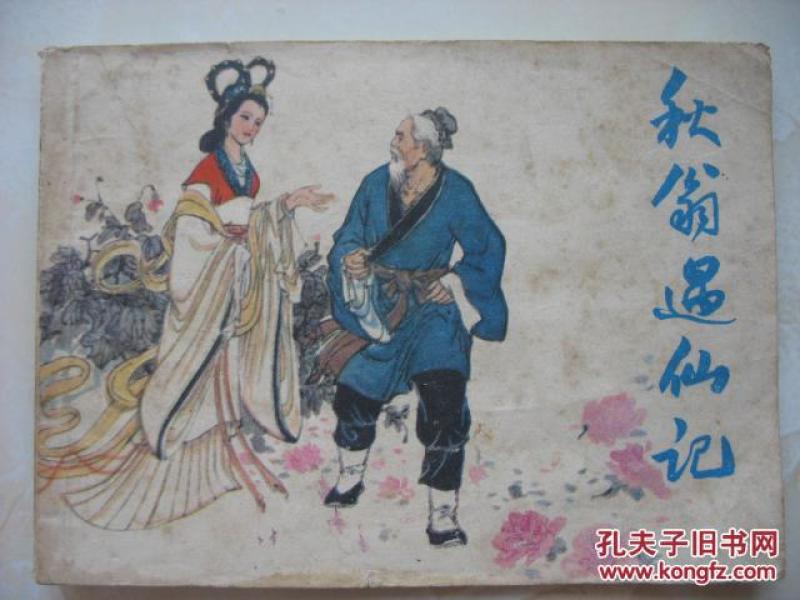 秋翁遇仙记
孔夫子旧书网
www.kongfz.com